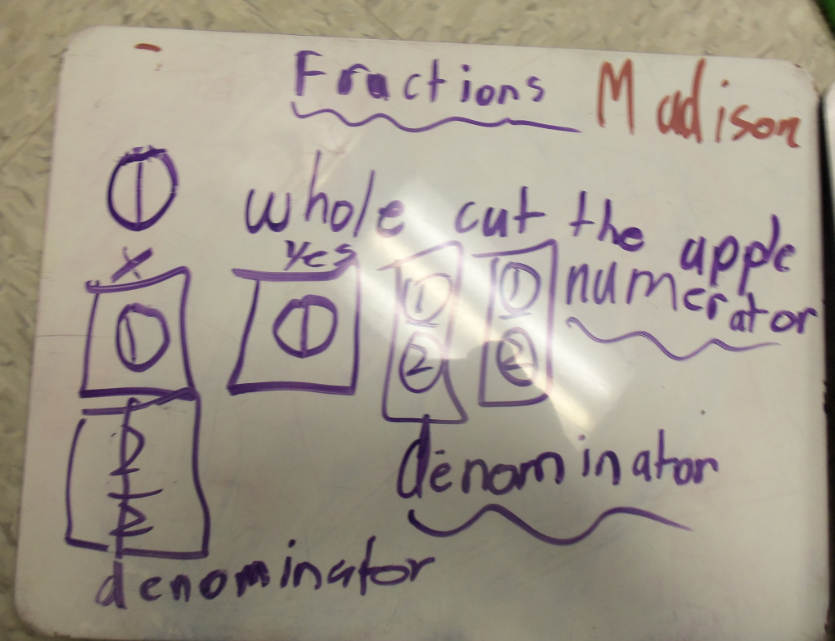 Fractions Madison
whole cut the apple
x yes numerator
1 1 1 1
2 2
denominator
denominator